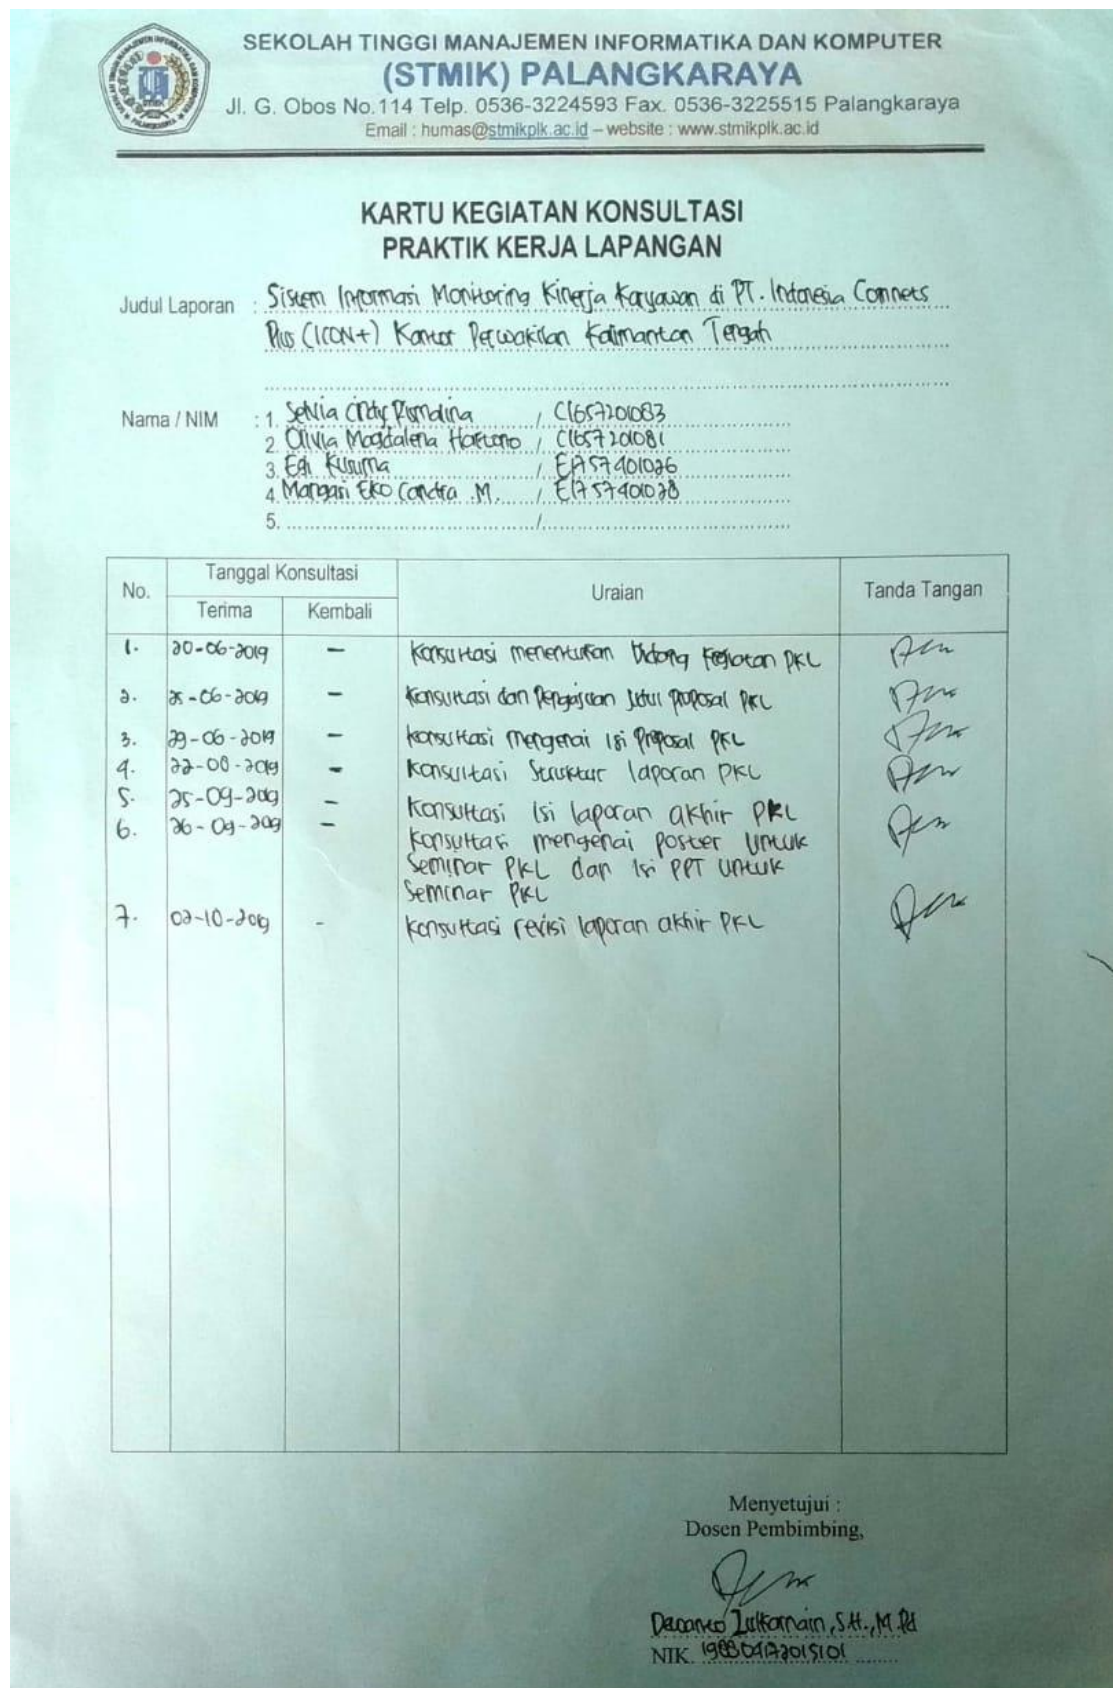 SEKOLAH TINGGI MANAJEMEN INFORMATIKA DAN KOMPUTER
(STMIK) PALANGKARAYA
Jl. G. Obos No.114 Telp. 0536-3224593 Fax. 0536-3225515 Palangkaraya
Email : humas@stmikplk.ac.id – website : www.stmikplk.ac.id
KARTU KEGIATAN KONSULTASI
PRAKTIK KERJA LAPANGAN
Judul Laporan : Sistem Informasi Monitoring Kinerja Karyawan di PT. Indonesia Comnets
Plus (ICON+) Kantor Perwakilan Kalimantan Tengah
Nama / NIM : 1. Selvia Cindy / C1657201083
2. Olivia Magdalena Hartono / C1657201081
3. Egi Kusuma / EA57401026
4. Mangasi Eko Candra .M. / 
5. /
No. Tanggal Konsultasi Uraian Tanda Tangan
Terima Kembali
1. 20-06-2019 – Konsultasi menentukan bidang kegiatan PKL
2. 25-06-2019 – Konsultasi dan Pengajuan Judul proposal PKL
3. 29-06-2019 – Konsultasi mengenai isi Proposal PKL
4. 22-08-2019 – Konsultasi Struktur laporan PKL
5. 25-09-2019 – Konsultasi isi laporan akhir PKL
6. 26-09-2019 – Konsultasi mengenai poster untuk
Seminar PKL dan isi PPT untuk
Seminar PKL
7. 02-10-2019 - Konsultasi revisi laporan akhir PKL
Menyetujui :
Dosen Pembimbing,
Zulkarnain, S.H., M.Pd
NIK.